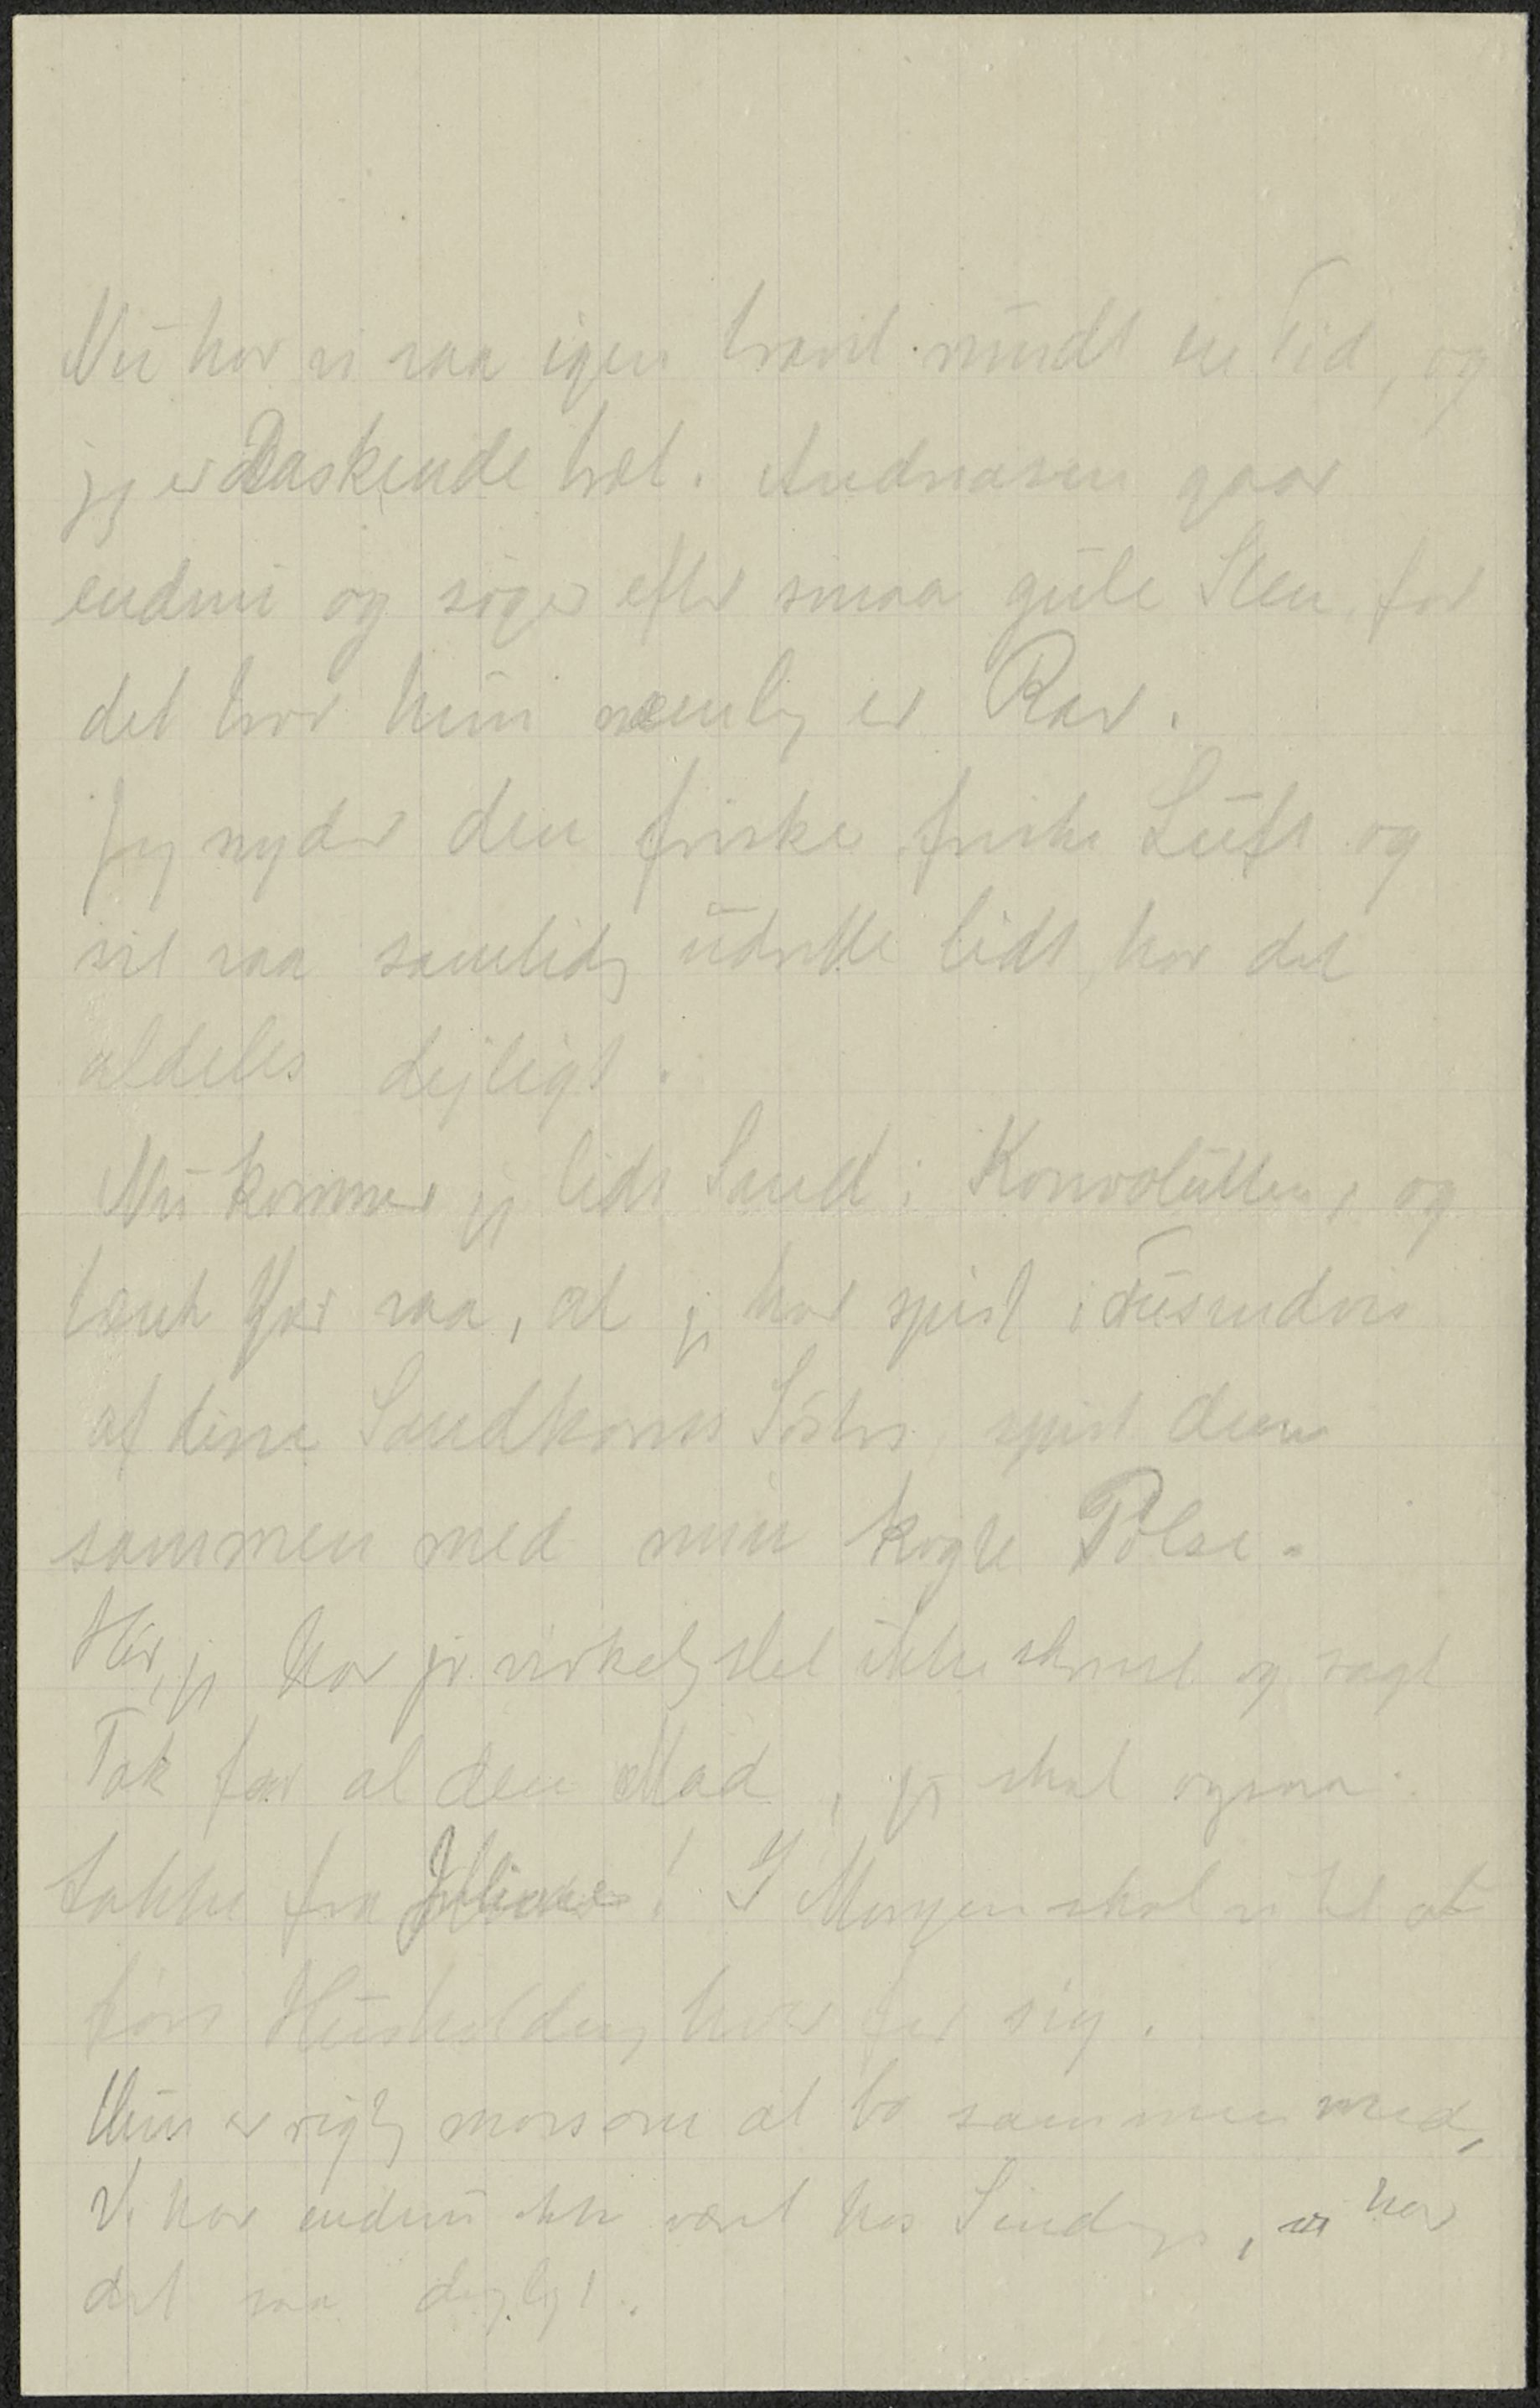 Nu har vi saa igen travet rundt en Tid, og
jeg er Daskende træt. Andreasen gaar
endnu og søger efter smaa gule Sten, for
det tror hun nemlig er Rav.
Jeg nyder den friske friske Luft og
vil saa samtidig udrette lidt, har det
aldeles dejligt.
Nu kommer jeg lidt Sand i Konvolutten, og
tænk Jer saa, at jeg har spist i Tusindvis
af disse Sandkorns Søstre, spist dem
sammen med min kogte Pølse.
Hør, jeg har jo virkelig slet ikke skrevet og sagt
Tak for al den Mad, jeg skal ogsaa
takke fra ! I Morgen skal vi til at
føre Husholdning hver for sig.
Hun er rigtig morsom at bo sammen med,
Vi har endnu ikke været hos Sindings, vi har
det saa dejligt.